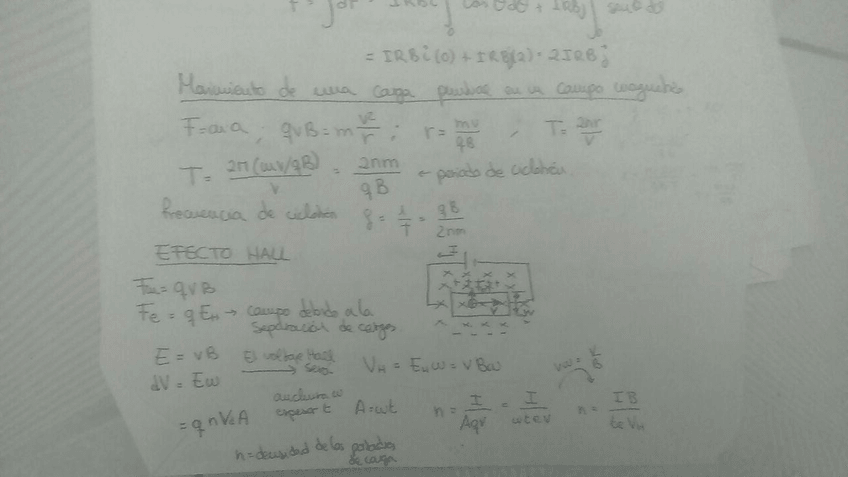 = ∫dF = IRBi ∫ cosθdθ + IRBj ∫ senθdθ
= IRBi(0) + IRBj(2) · 2IRBj
Movimiento de una carga puntual en un campo magnético
F=ma ; qvB = m v²/r ; r = mv/qB , T = 2πr/v
T = 2π(mv/qB)/v = 2πm/qB ← periodo de ciclotrón
Frecuencia de ciclotrón f = 1/T = qB/2πm
EFECTO HALL
← I
Fm = qvB
Fe = qEH → campo debido a la
separación de cargas
E = vB El voltaje Hall será VH = EHw = vBw vw = V/B
dV = Ew
anchura w
espesor t A=wt n = I/Aqv = I/wtev n = IB/teVH
= q n V A
n=densidad de los portadores
de carga